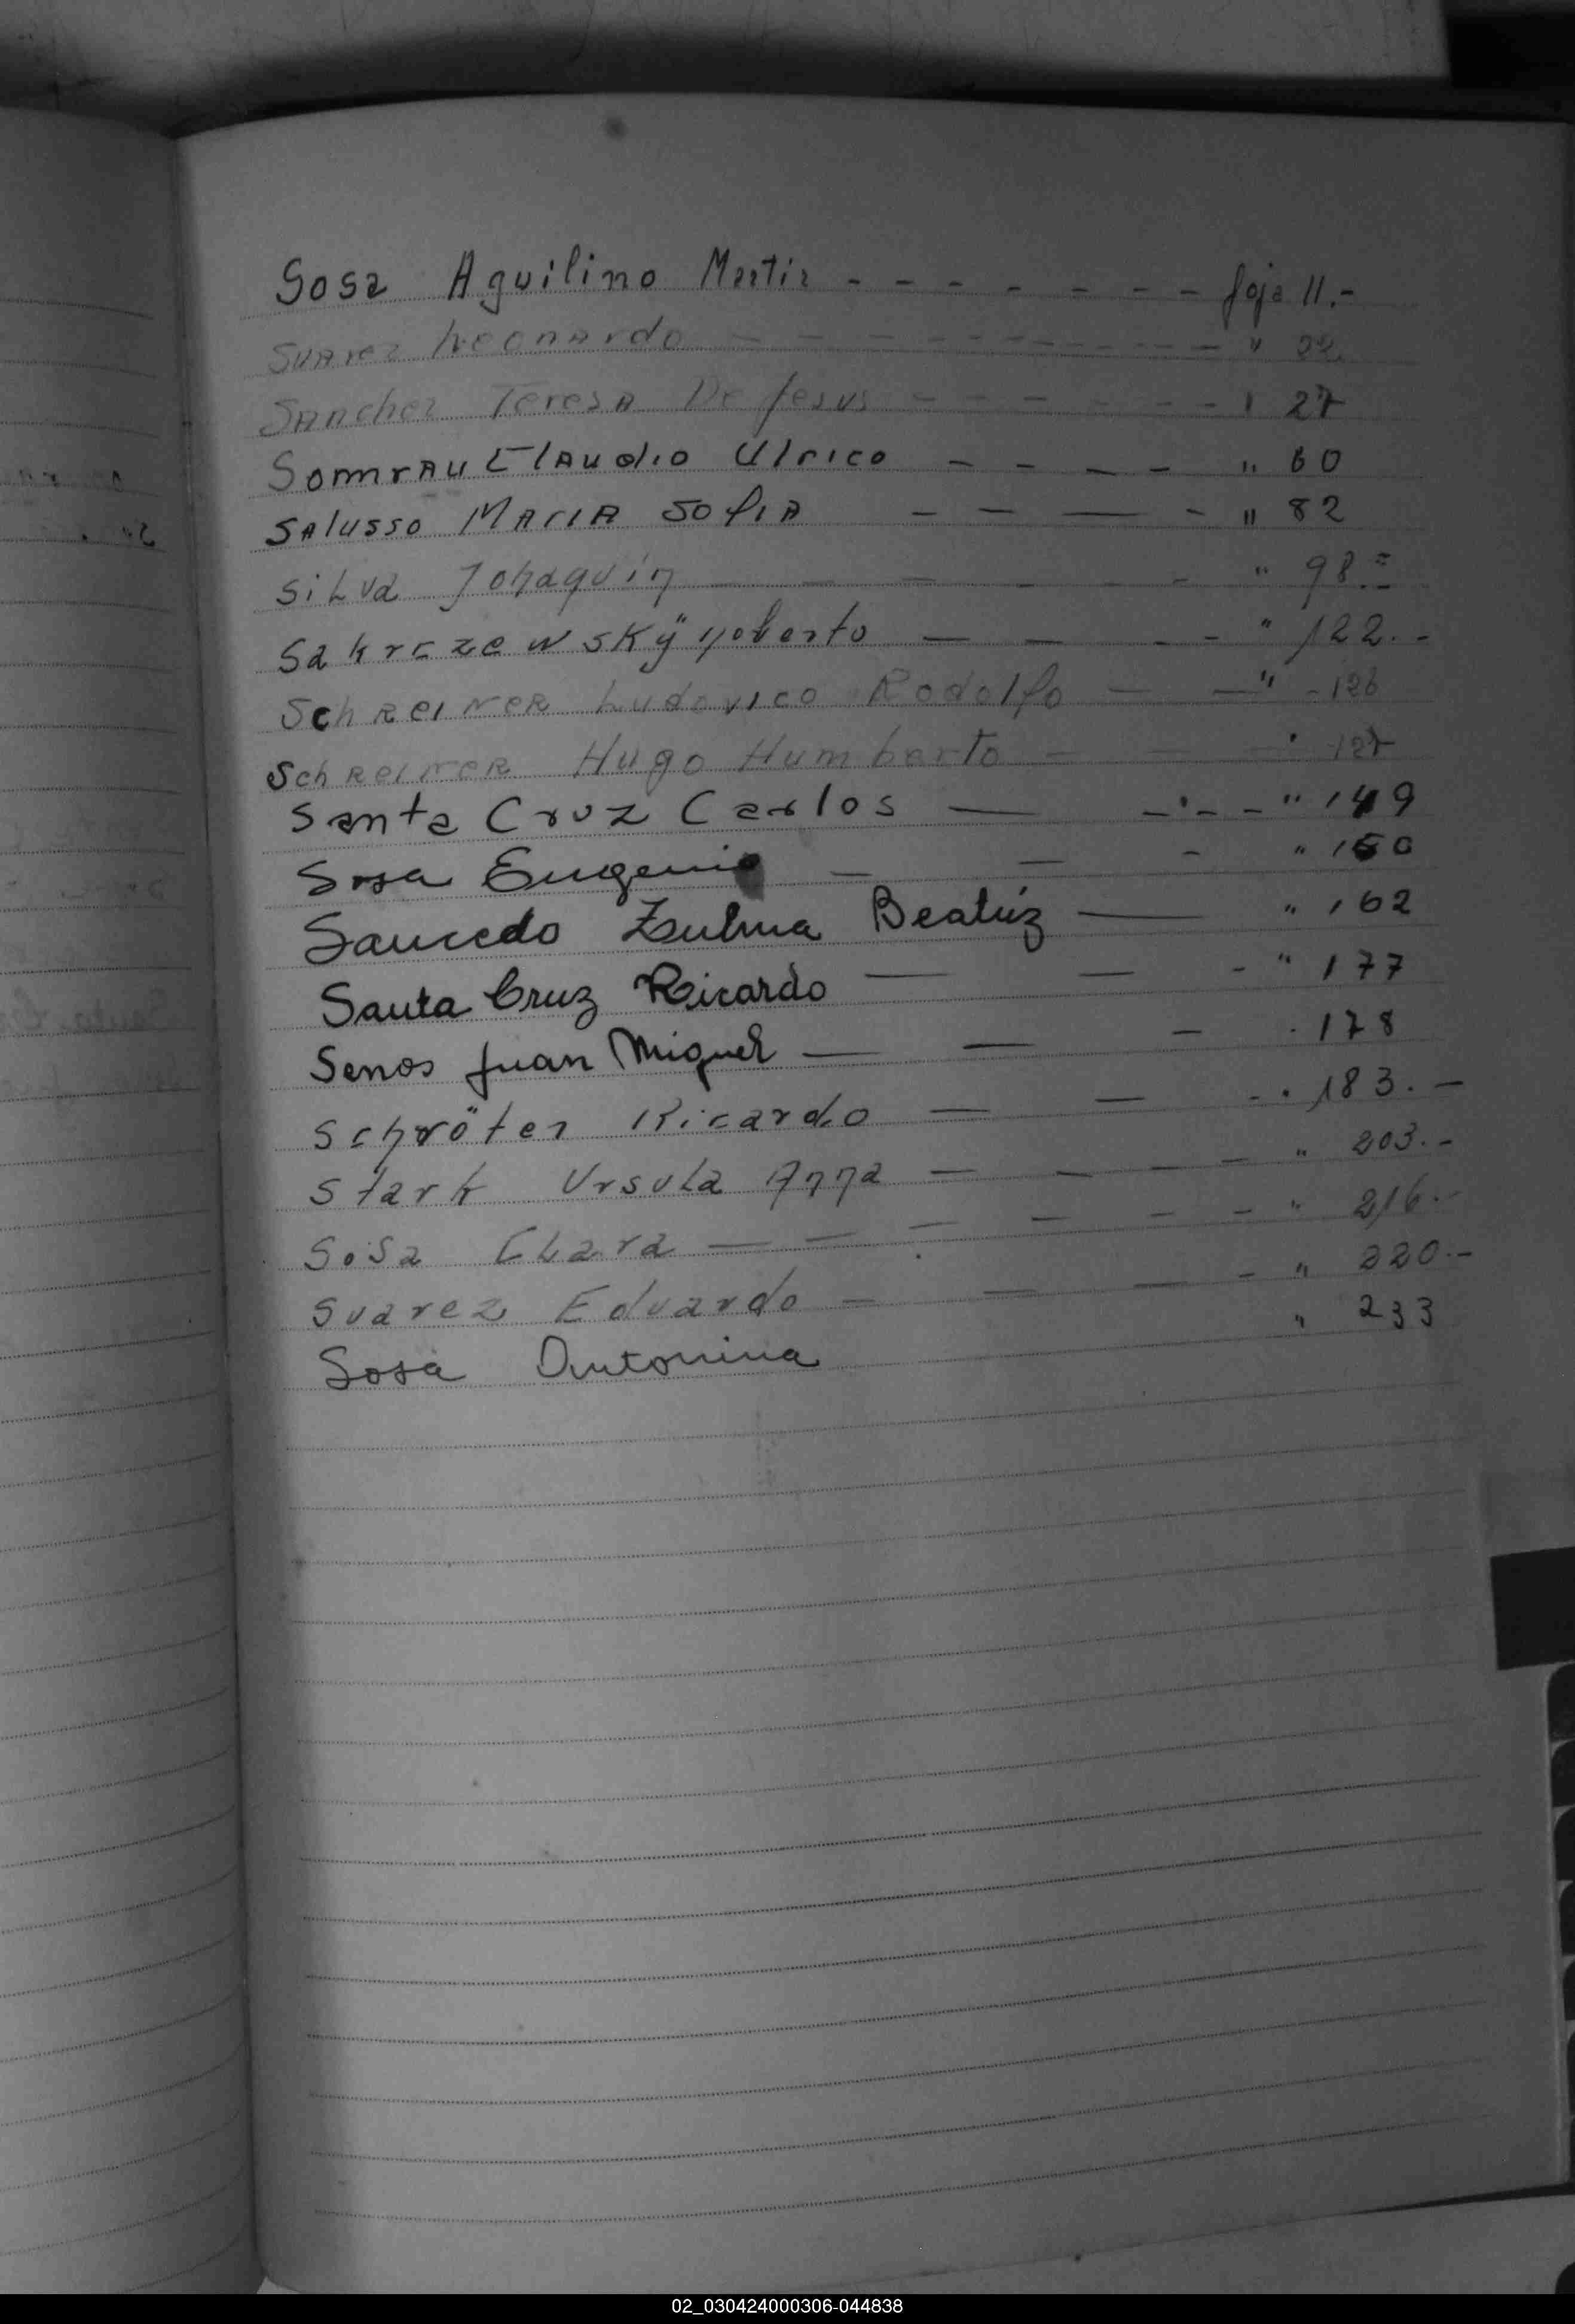 Sosa Aguilino Martir - - - - - - - foja 11.-
Suarez Leonardo - - - - - - - - - - " 22
Sanchez Teresa De Jesus - - - - - - - " 27
Somrau Claudio Ulrico - - - - " 60
Salusso Maria Sofia - - — - " 82
Silva Johaquin - - - - - - " 98.=
Sakrczewskÿ Noberto — — - - " 122.-
Schreiner Ludovico Rodolfo — — " - 126
Schreiner Hugo Humberto — — - " 127
Santa Cruz Carlos — - - - " 149
Sosa Eugenio — — - " 150
Saucedo Zulma Beatriz — " 162
Santa Cruz Ricardo — — - " 177
Senos Juan Miguel — — - . 178
Schröter Ricardo — — - . 183.-
Stark Ursula Anna — - - - " 203.-
Sosa Clara — — — - - - " 216.-
Suarez Eduardo — — — - " 220.-
Sosa Antonina " 233
02_030424000306-044838